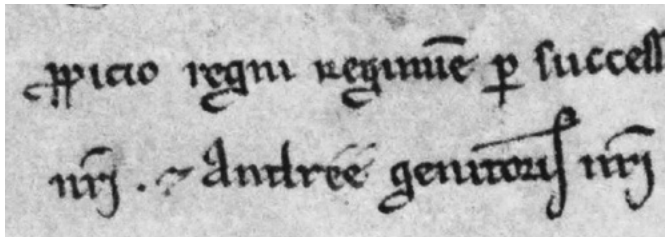 ꝓpicio regni regimē ꝑ success
nr̄i . ⁊ Andree genitoris nr̄i